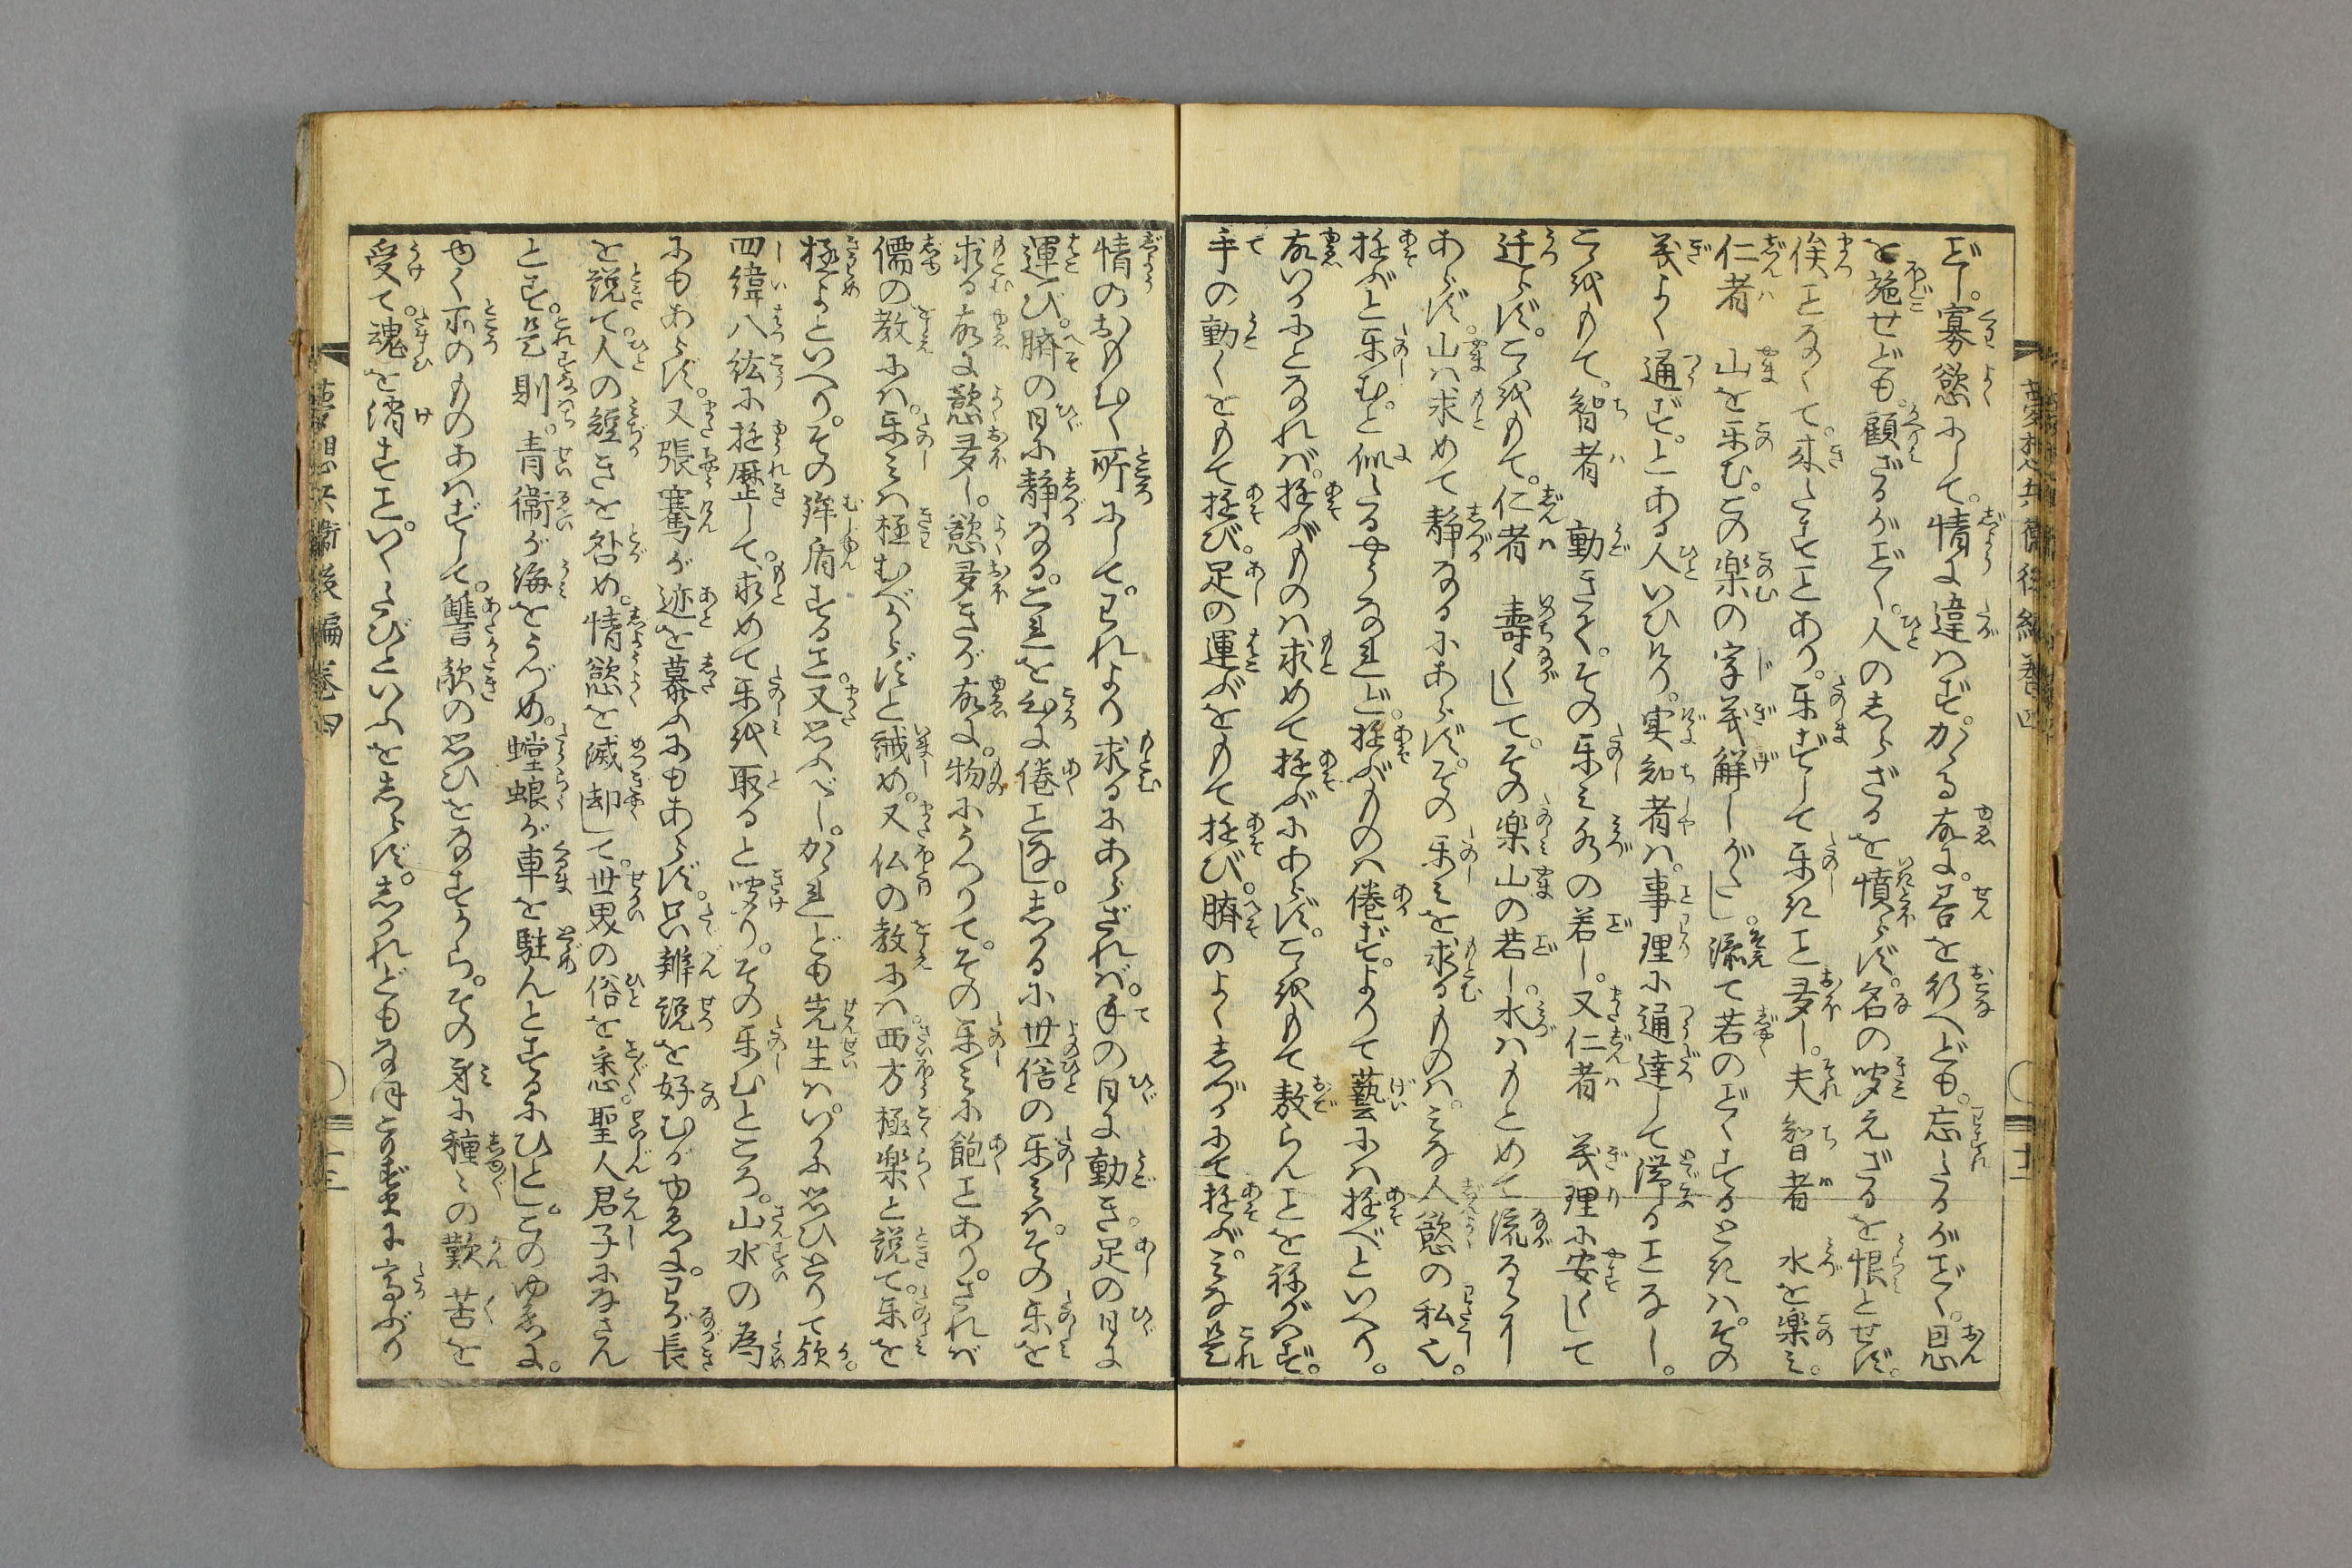 どし。寡慾にして。情に違はず。かゝる故に。善を行へども。忘たるがごとく。恩
を施せども。顧ざるがごとく。人のしらざるを憤らず。名の聞えざるを恨とせず。
俟ことなくて。来たすことあり。楽ずして楽きこと多し。夫智者ハ水を楽み。
仁者ハ山を楽む。この楽の字義解しがたし。添て若のごとくするときハ。その
義よく通ず。とある人いひけり。実知者は。事理に通達して滞ることなし。
こゝをもて。智者ハ動きて。その楽み水の若し。又仁者ハ義理に安くして
迁らず。こゝをもて。仁者ハ壽くして。その楽山の若し。水ハもとめて流るゝに
あらず。山は求めて静なるにあらず。その楽みを求るものハ。みな人慾の私也。
遊ぶと楽むと似たるやうなれど。遊ぶものハ倦ず。よりて藝にハ遊べといへり。
故いかにとなれば。遊ぶものハ求めて遊ぶにあらず。こゝをもて敖らんことを禰がはず。
手の動くをもて遊び。足の運ぶをもて遊び。臍のよくしづかにて遊ぶ。みな是
情のおもむく所にして。われより求るにあらざれば。手の日に動き。足の日に
運び。臍の日に静なる。これを心に倦ことなし。しかるに世俗の楽みハ。その楽を
求る故に慾多し。慾多きが故に。物にうつりて。その楽みに飽ことあり。されば
儒の教にハ。楽みハ極むべからずと誡め。又仏の教にハ。西方極楽と説て。楽を
極よといへり。その鉾盾すること。又思ふべし。かゝれども先生ハ。いかに思ひとりて歟。
四緯八紘に遊歴して。求めて楽を取ると聞けり。その楽むところ。山水の為
にもあらず。又張騫が迹を慕ふにもあらず。只辨説を好むがゆゑに。わが長
を説て。人の短きを咎め。情慾を滅却して。世界の俗を悉く聖人君子になさん
とす。是則。青衞が海をうづめ。螳蜋が車を駐んとするにひとし。このゆゑに。
ゆく所のものあはずして。讐敵の思ひをなすから。その身に種々の歎苦を
受て。魂を消すこと。いくたびといふをしらず。しかれどもなほこりずまに高ぶり
夢想兵衞後編巻四
十二
夢想兵衞後編巻四
十三